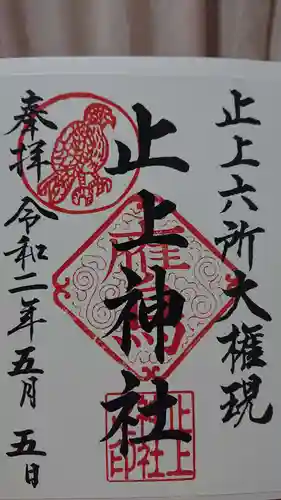 止上六所大権現
止上神社
奉拝 令和二年五月五日
止上
神社